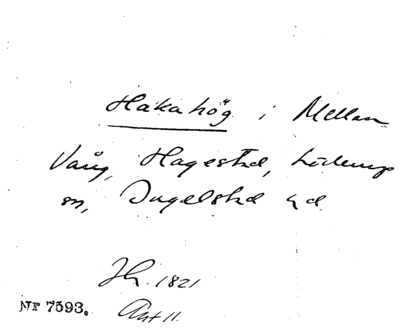 Hakahög i Mellan
Vång, Hagestad, Löderup
sn, Ingelstad hd.
Jh. 1821
Ant 11.
Nr 7593.